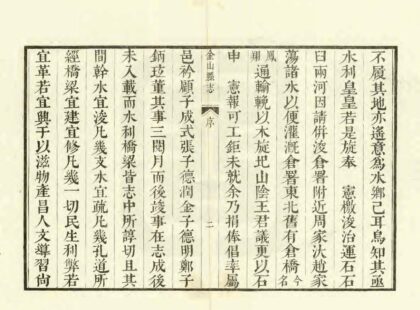 不履其地亦遙意為水鄉已耳烏知其亟
水利皇皇若是旋奉　憲檄浚治運石石
臼兩河因請併浚倉署附近周家決趙家
蕩諸水以便灌溉倉署東北舊有倉橋今名
鳳翔通輸輓以木旋圮山陰王君議更以石
申　憲報可工鉅未就余乃捐俸倡率屬
金山縣志　序　二
邑衿顧子成式張子德潤金子德明鄭子
炳董其事三閱月而後竣事在志成後
未入載而水利橋梁皆志中所諄切且其
間幹水宜浚凡幾支水宜疏凡幾孔道所
經橋梁宜建宜修凡幾一切民生利弊若
宜革若宜興于以滋物產昌人文導習尚